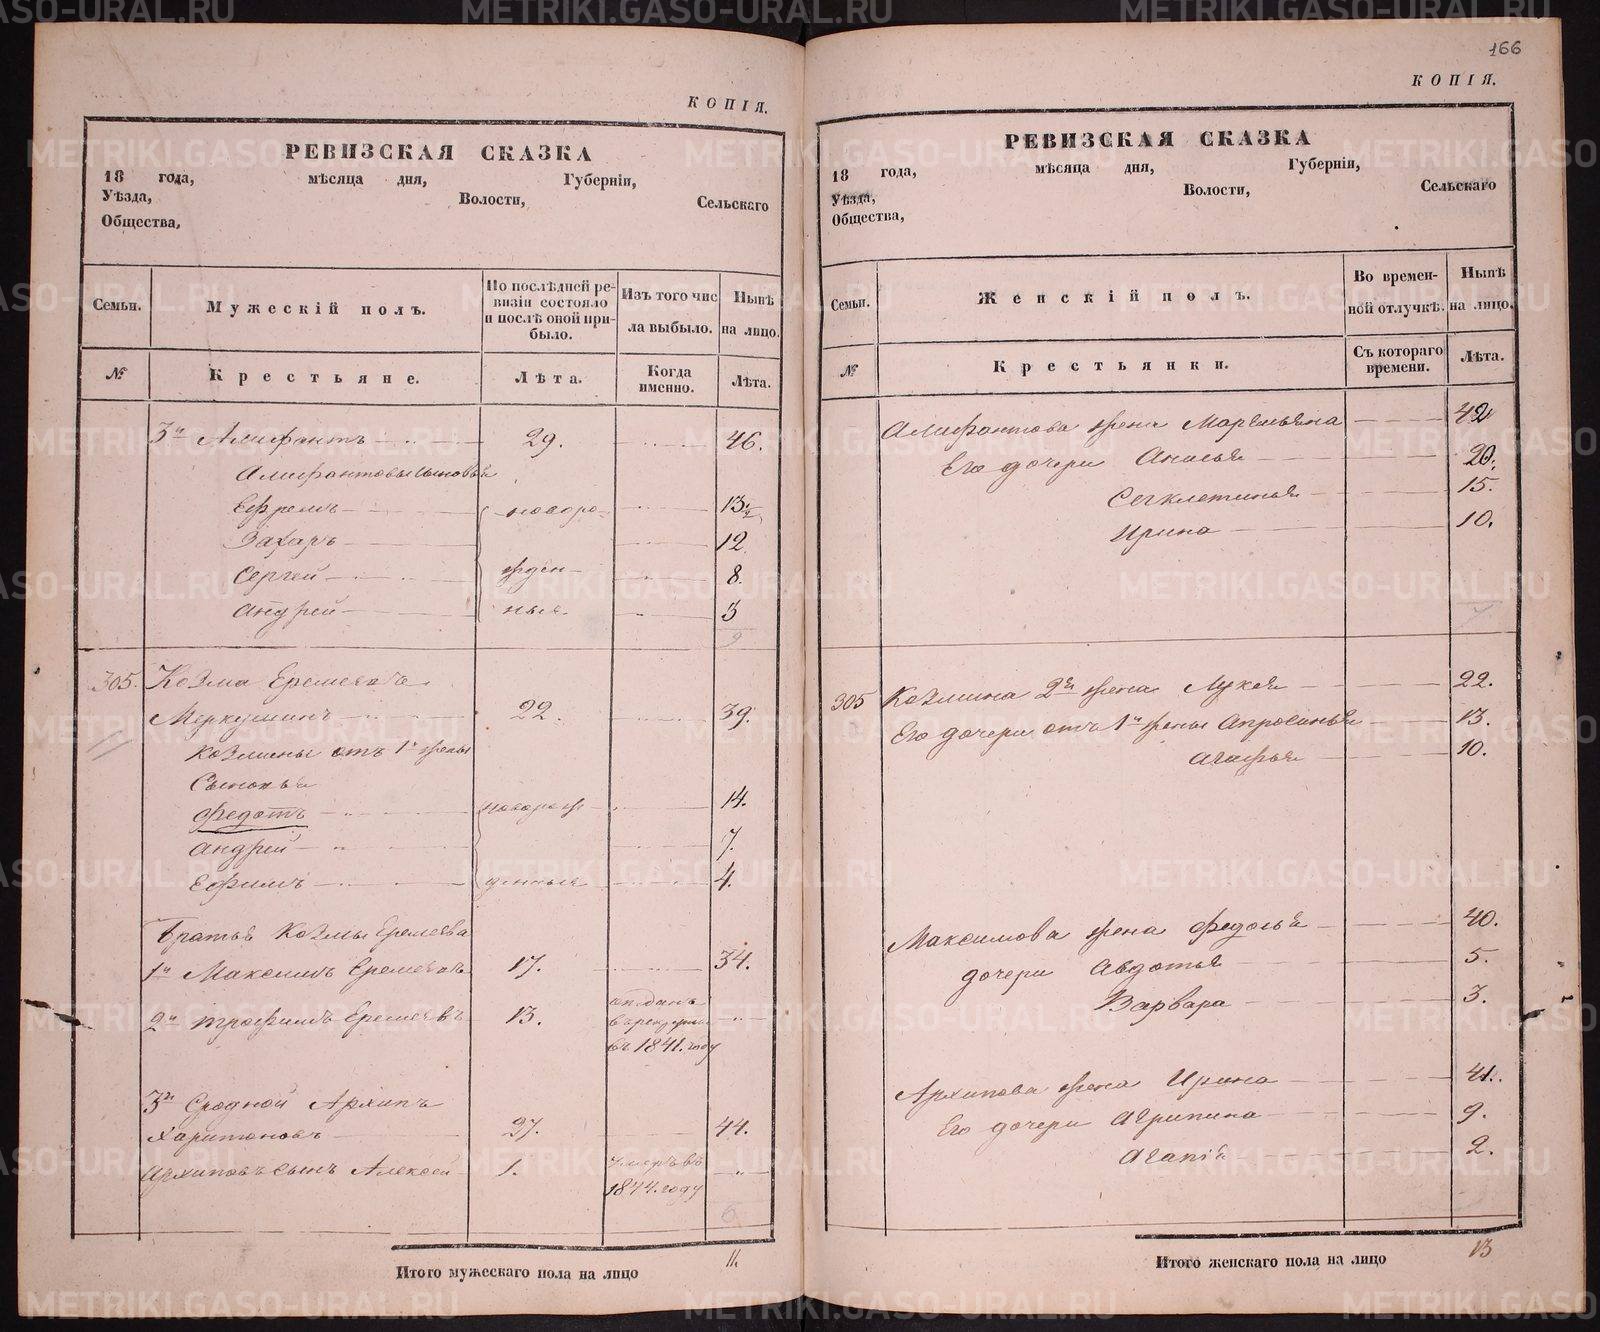 КОПІЯ.
РЕВИЗСКАЯ СКАЗКА
18 года, мѣсяца дня, Губерніи,
Уѣзда, Волости, Сельскаго
Общества,
Семьи. Мужескій полъ. По послѣдней ревизіи состояло и послѣ оной прибыло. Изъ того числа выбыло. Нынѣ на лицо.
№ Крестьяне. Лѣта. Когда именно. Лѣта.
3й Алифантъ 29. 46.
Алифантовы сыновья
Ефремъ новоро- 13
Захаръ 12
Сергей жден- 8.
Андрей ныя. 3
9
305. Козма Еремеевъ
Меркушинъ 22. 39.
Козмины отъ 1й жены
Сыновья
Федотъ новорож 14.
Андрей 7.
Ефимъ денныя 4.
Братья Козмы Еремеева
1й Максимъ Еремеевъ 17. 34.
2й Трофимъ Еремеевъ 13. отданъ в рекруты въ 1841. году
3й Сродной Архипъ
Харитоновъ 27. 44.
Архиповъ сынъ Алексей 1. умеръ въ 1844. году
6
Итого мужескаго пола на лицо 11.
166
КОПІЯ.
РЕВИЗСКАЯ СКАЗКА
18 года, мѣсяца дня, Губерніи,
Уѣзда, Волости, Сельскаго
Общества,
Семьи. Женскій полъ. Во временной отлучкѣ. Нынѣ на лицо.
№ Крестьянки. Съ котораго времени. Лѣта.
Алифантова жена Маремьяна 42
Его дочери Анисья 20.
Секлетинья 15.
Ирина 10.
305 Козмина 2я жена Лукея 22.
Его дочери отъ 1й жены Апросинья 13.
Агафья 10.
Максимова жена Федосья 40.
дочери Авдотья 5.
Варвара 3.
Архипова жена Ирина 41.
Его дочери Агрипина 9.
Агапія 2.
Итого женскаго пола на лицо 13
METRIKI.GASO-URAL.RU